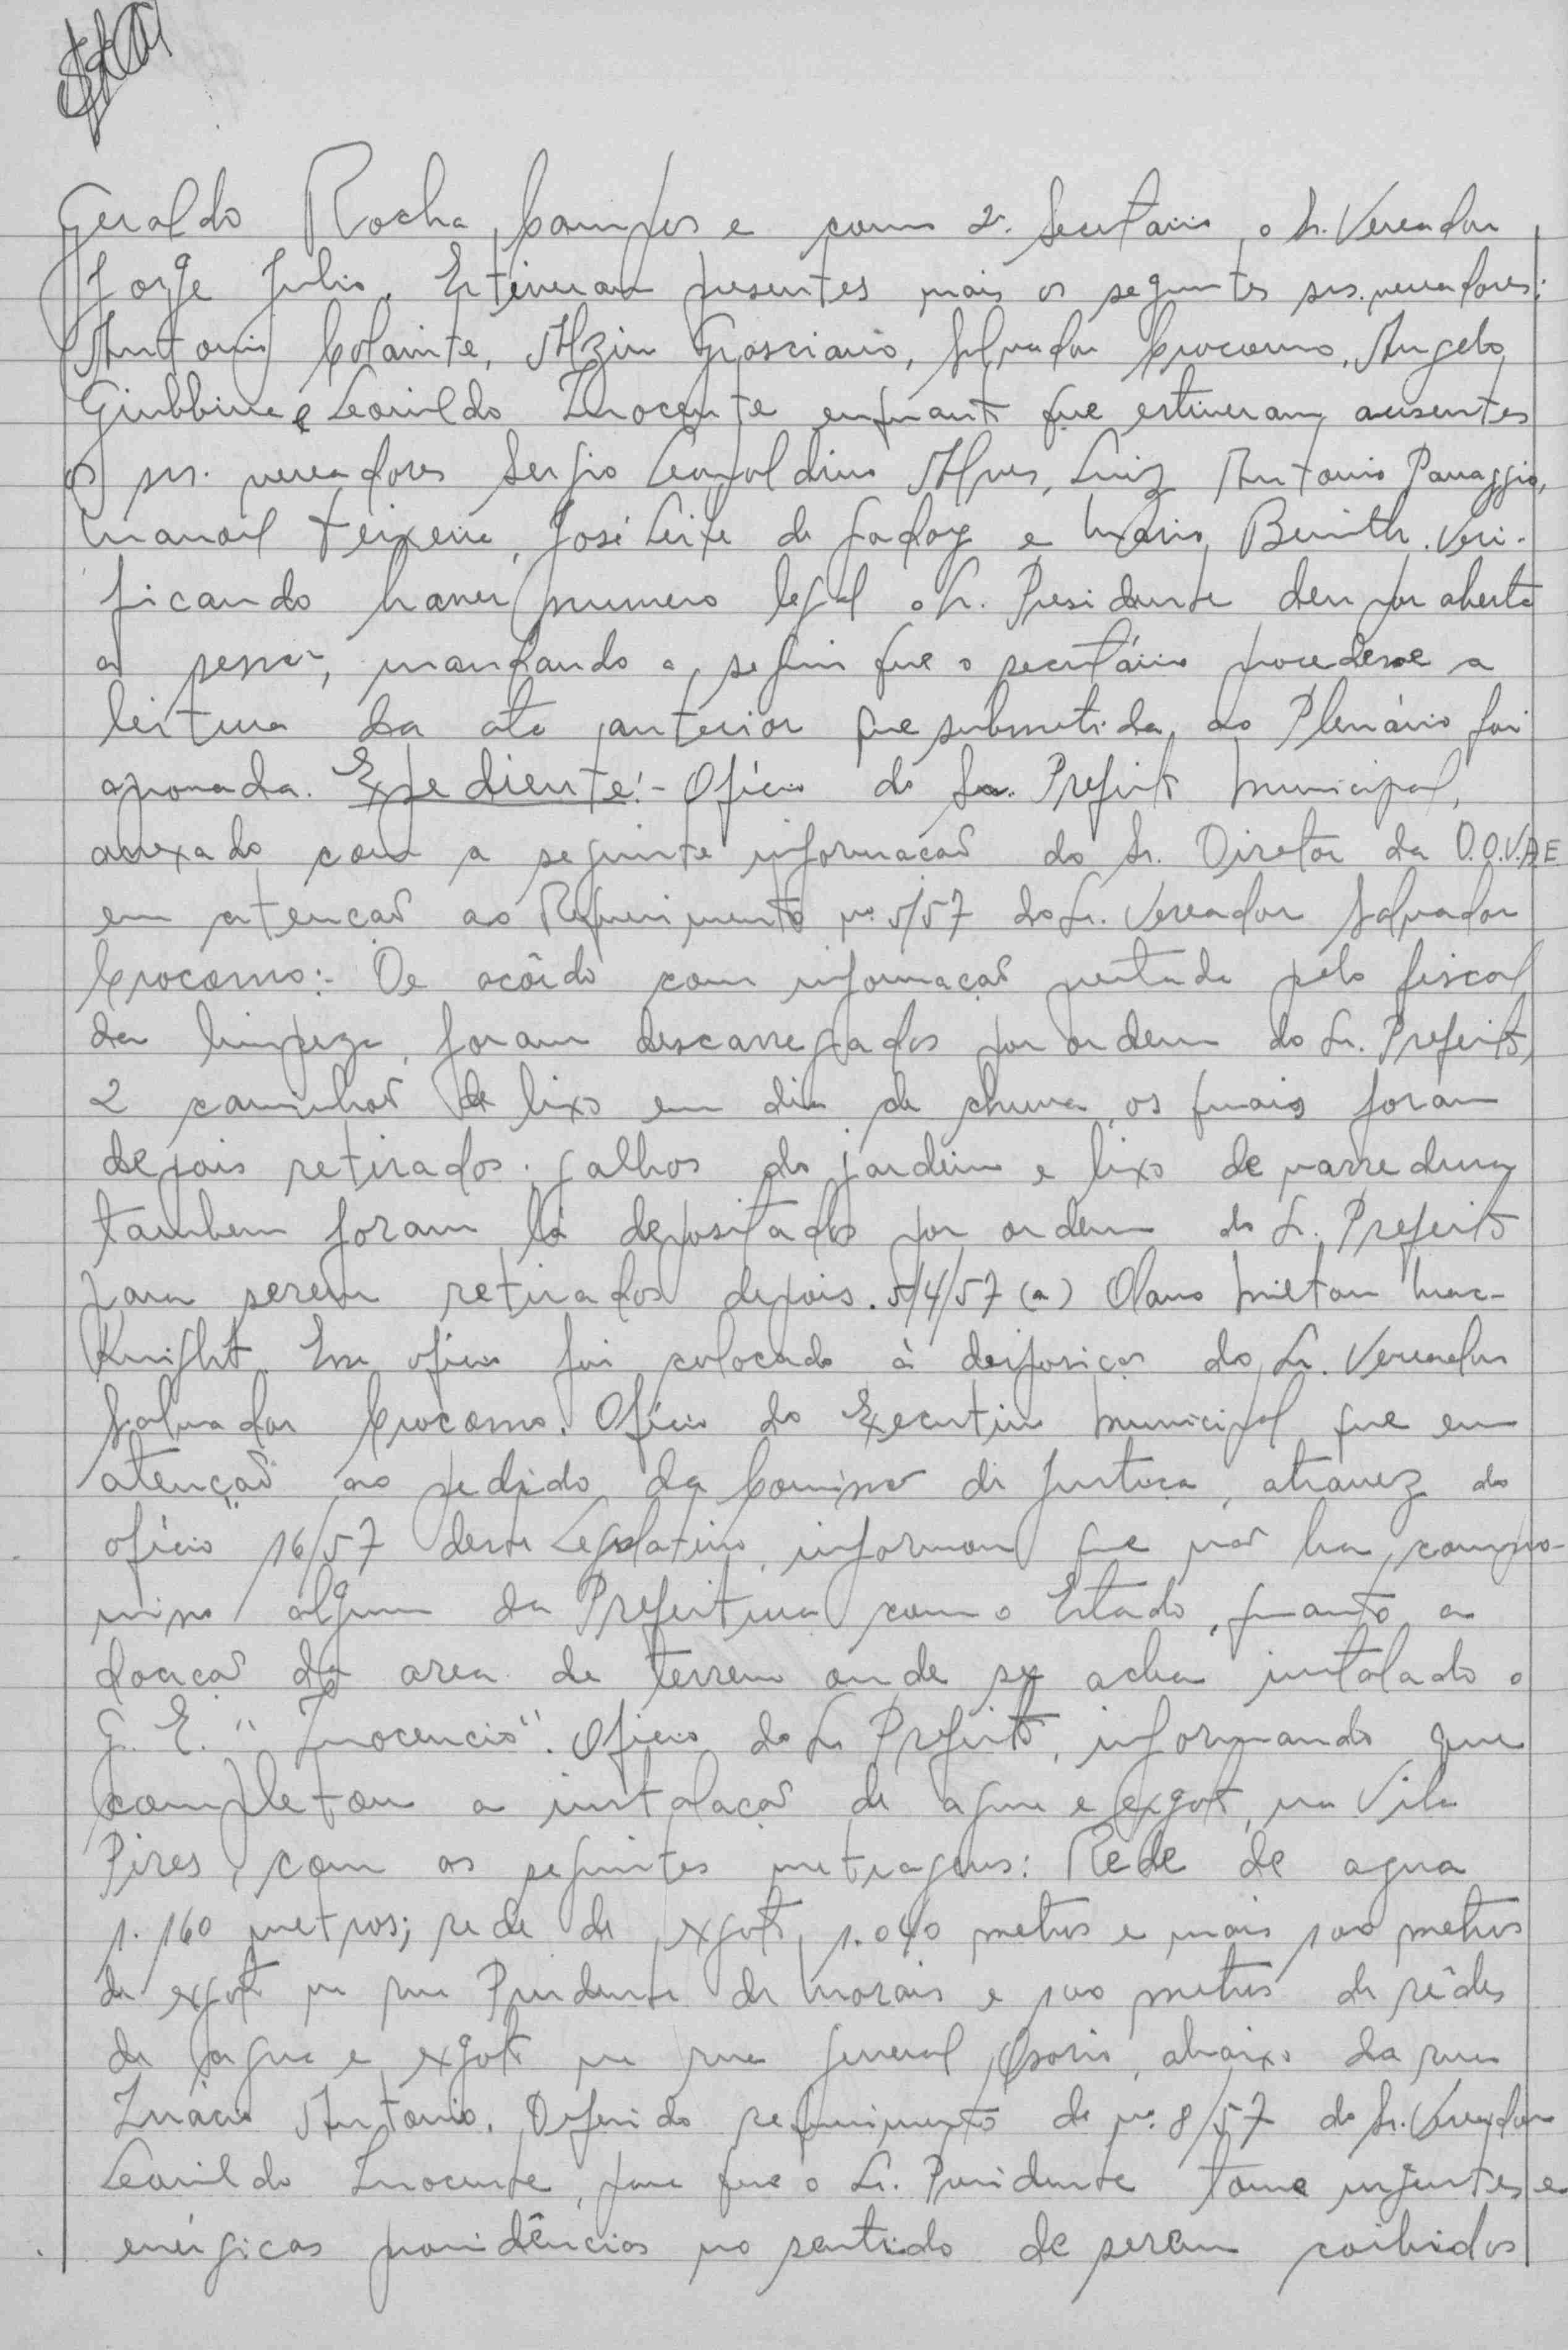 Geraldo Rocha Campos e como 2º. Secretario, o Sr. Vereador
Jorge Julio. Estiveram presentes mais os seguintes srs. vereadores:
Antonio Colainte, Alzim Grasciano, Salvador Crocomo, Angelo
Giubbina e Leonildo Inocente enquanto que estiveram ausentes
os srs. vereadores Sergio Leopoldino Alves, Luiz Antonio Panaggio,
Manoel Teixeira, José Leite de Godoy e Mario. Veri-
ficando haver numero legal o Sr. Presidente deu por aberta
a sessão, mandando a seguir que o secretário procedesse a
leitura da ata anterior que submetida ao Plenário foi
aprovada. Expediente:- Ofício do Sr. Prefeito Municipal,
anexado com a seguinte informação do Sr. Diretor da D.O.V.A.E
em atenção ao Requerimento nº. 5/57 do Sr. Vereador Salvador
Crocomo:- De acôrdo com informação prestada pelo fiscal
da limpeza, foram descarregados por ordem do Sr. Prefeito,
2 caminhões de lixo em dia de chuva, os quais foram
depois retirados. galhos do jardim e lixo de varredura
tambem foram lá depositados por ordem do Sr. Prefeito
para serem retirados depois. 5/4/57 (a) Olavo Milton Mac-
Knight. Esse ofício foi colocado à disposição do Sr. Vereador
Salvador Crocomo. Ofício do Executivo Municipal que em
atenção ao pedido da Comissão de Justiça, atravez do
ofício 16/57 deste Legislativo, informou que não ha compro-
misso algum da Prefeitura com o Estado, quanto a
doação da area de terreno onde se acha instalado o
G. E. "Inocencio". Oficio do Sr Prefeito, informando que
completou a instalação de agua e exgoto, na Vila
Pires, com as seguintes metragens: Rede de agua
1.160 metros; rede de exgoto, 1.040 metros e mais 100 metros
de exgoto na rua Prudente de Morais e 100 metros de rêdes
de agua e exgoto na rua General Osorio, abaixo da rua
Inácio Antonio. Deferido requerimento de nº. 8/57 do Sr. Vereador
Leonildo Inocente, para que o Sr. Presidente tome urgentes e
enérgicas providências no sentido de serem coibidos